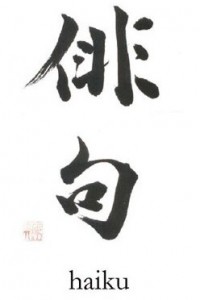 俳
句
haiku